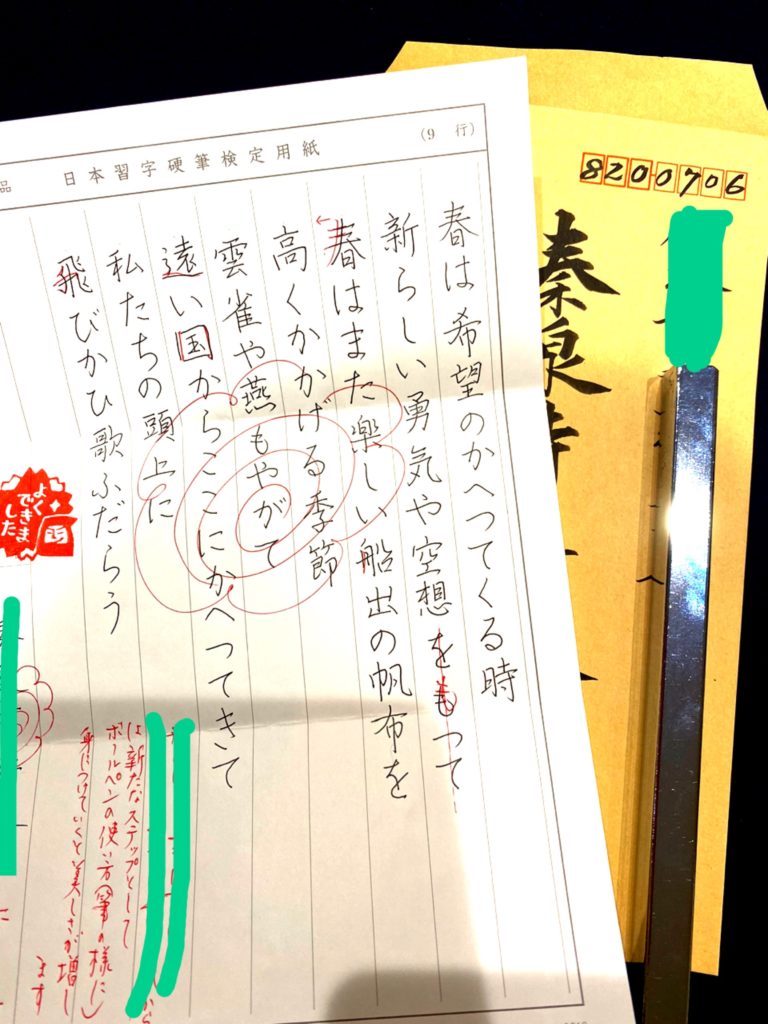 品 日本習字硬筆検定用紙 (9 行)
春は希望のかへつてくる時
新らしい勇気や空想をもつて
春はまた楽しい船出の帆布を
高くかかげる季節
雲雀や燕もやがて
遠い国からここにかへつてきて
私たちの頭上に
飛びかひ歌ふだらう
よくできました
から
は新たなステップとして
ボールペンの使い方(筆の様に)
身につけていくと美しさが増し
ます
8200706